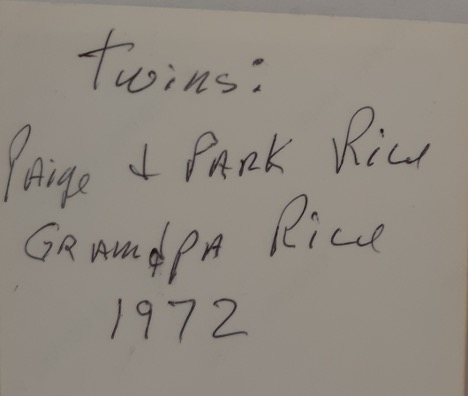 Twins:
Paige & PARK Rice
GRANdPA Rice
1972